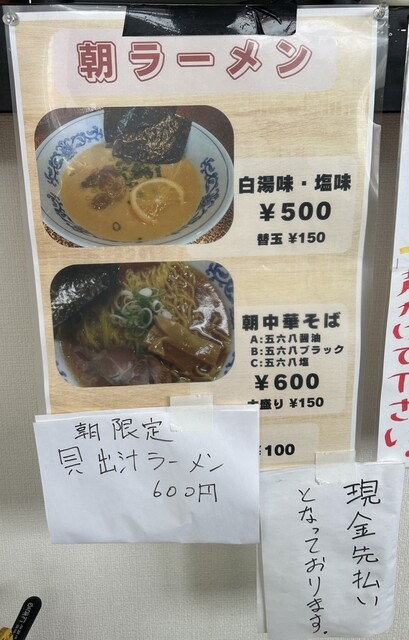 朝ラーメン
白湯味・塩味
¥500
替玉 ¥150
朝中華そば
A:五六八醤油
B:五六八ブラック
C:五六八塩
¥600
大盛り ¥150
¥100
朝限定
貝出汁ラーメン
600円
現金先払い
となっております。
声かけて下さい